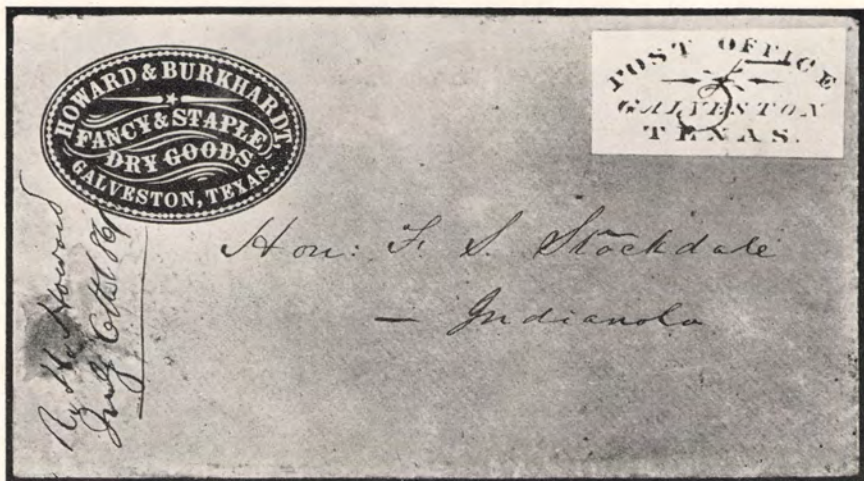 HOWARD & BURKHARDT,
FANCY & STAPLE
DRY GOODS
GALVESTON, TEXAS.
POST OFFICE
5
GALVESTON
TEXAS.
Hon: F. S. Stockdale
— Indianola
Howard
July 6th